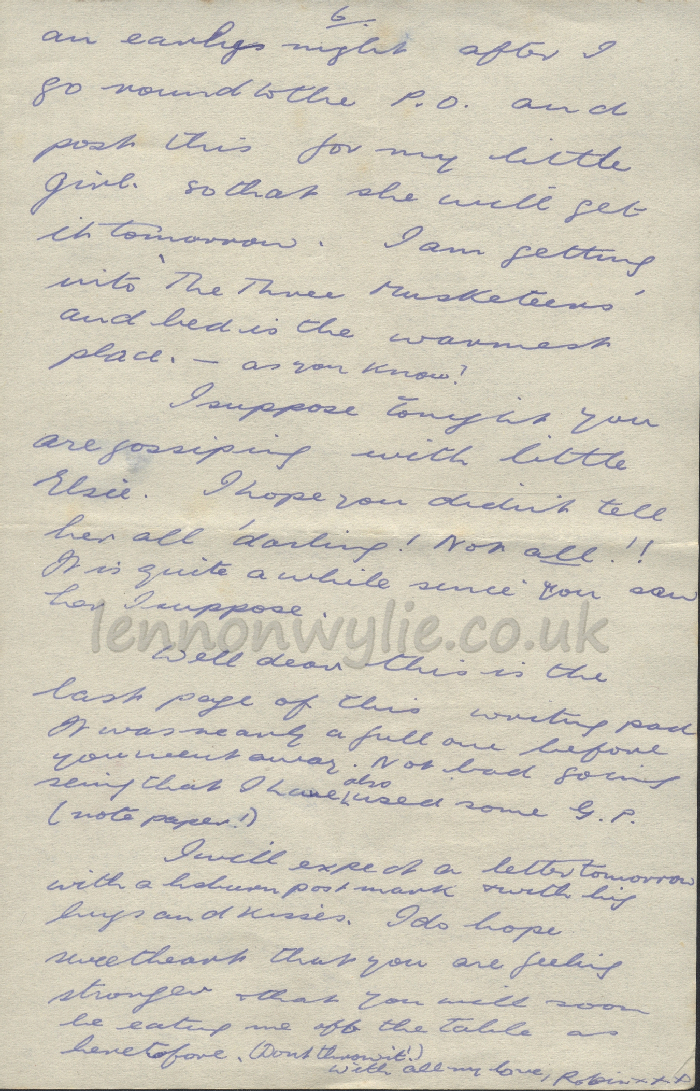 6.
an early night after I
go round to the P.O. and
post this for my little
girl. so that she will get
it tomorrow. I am getting
into 'The Three Musketeers'
and bed is the warmest
place. — as you know!
I suppose tonight you
are gossiping with little
Elsie. I hope you didn't tell
her all 'darling! Not all.!!
It is quite a while since you saw
her I suppose.
lennonwylie.co.uk
Well dear this is the
last page of this writing pad
It was nearly a full one before
you went away. Not bad going
seing that I have also used some G.P.
(note paper!)
I will expect a letter tomorrow
with a Lisburn post mark & with big
hugs and kisses. I do hope
sweetheart that you are feeling
stronger & that you will soon
be eating me off the table as
heretofore. (Don't throw it!)
With all my love, Robin x x x